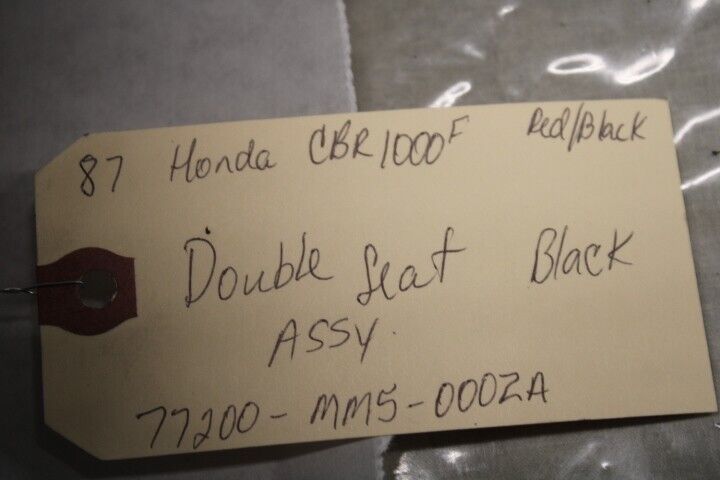 87 Honda CBR1000F Red/Black
Double Seat Black
ASSY.
77200-MM5-000ZA